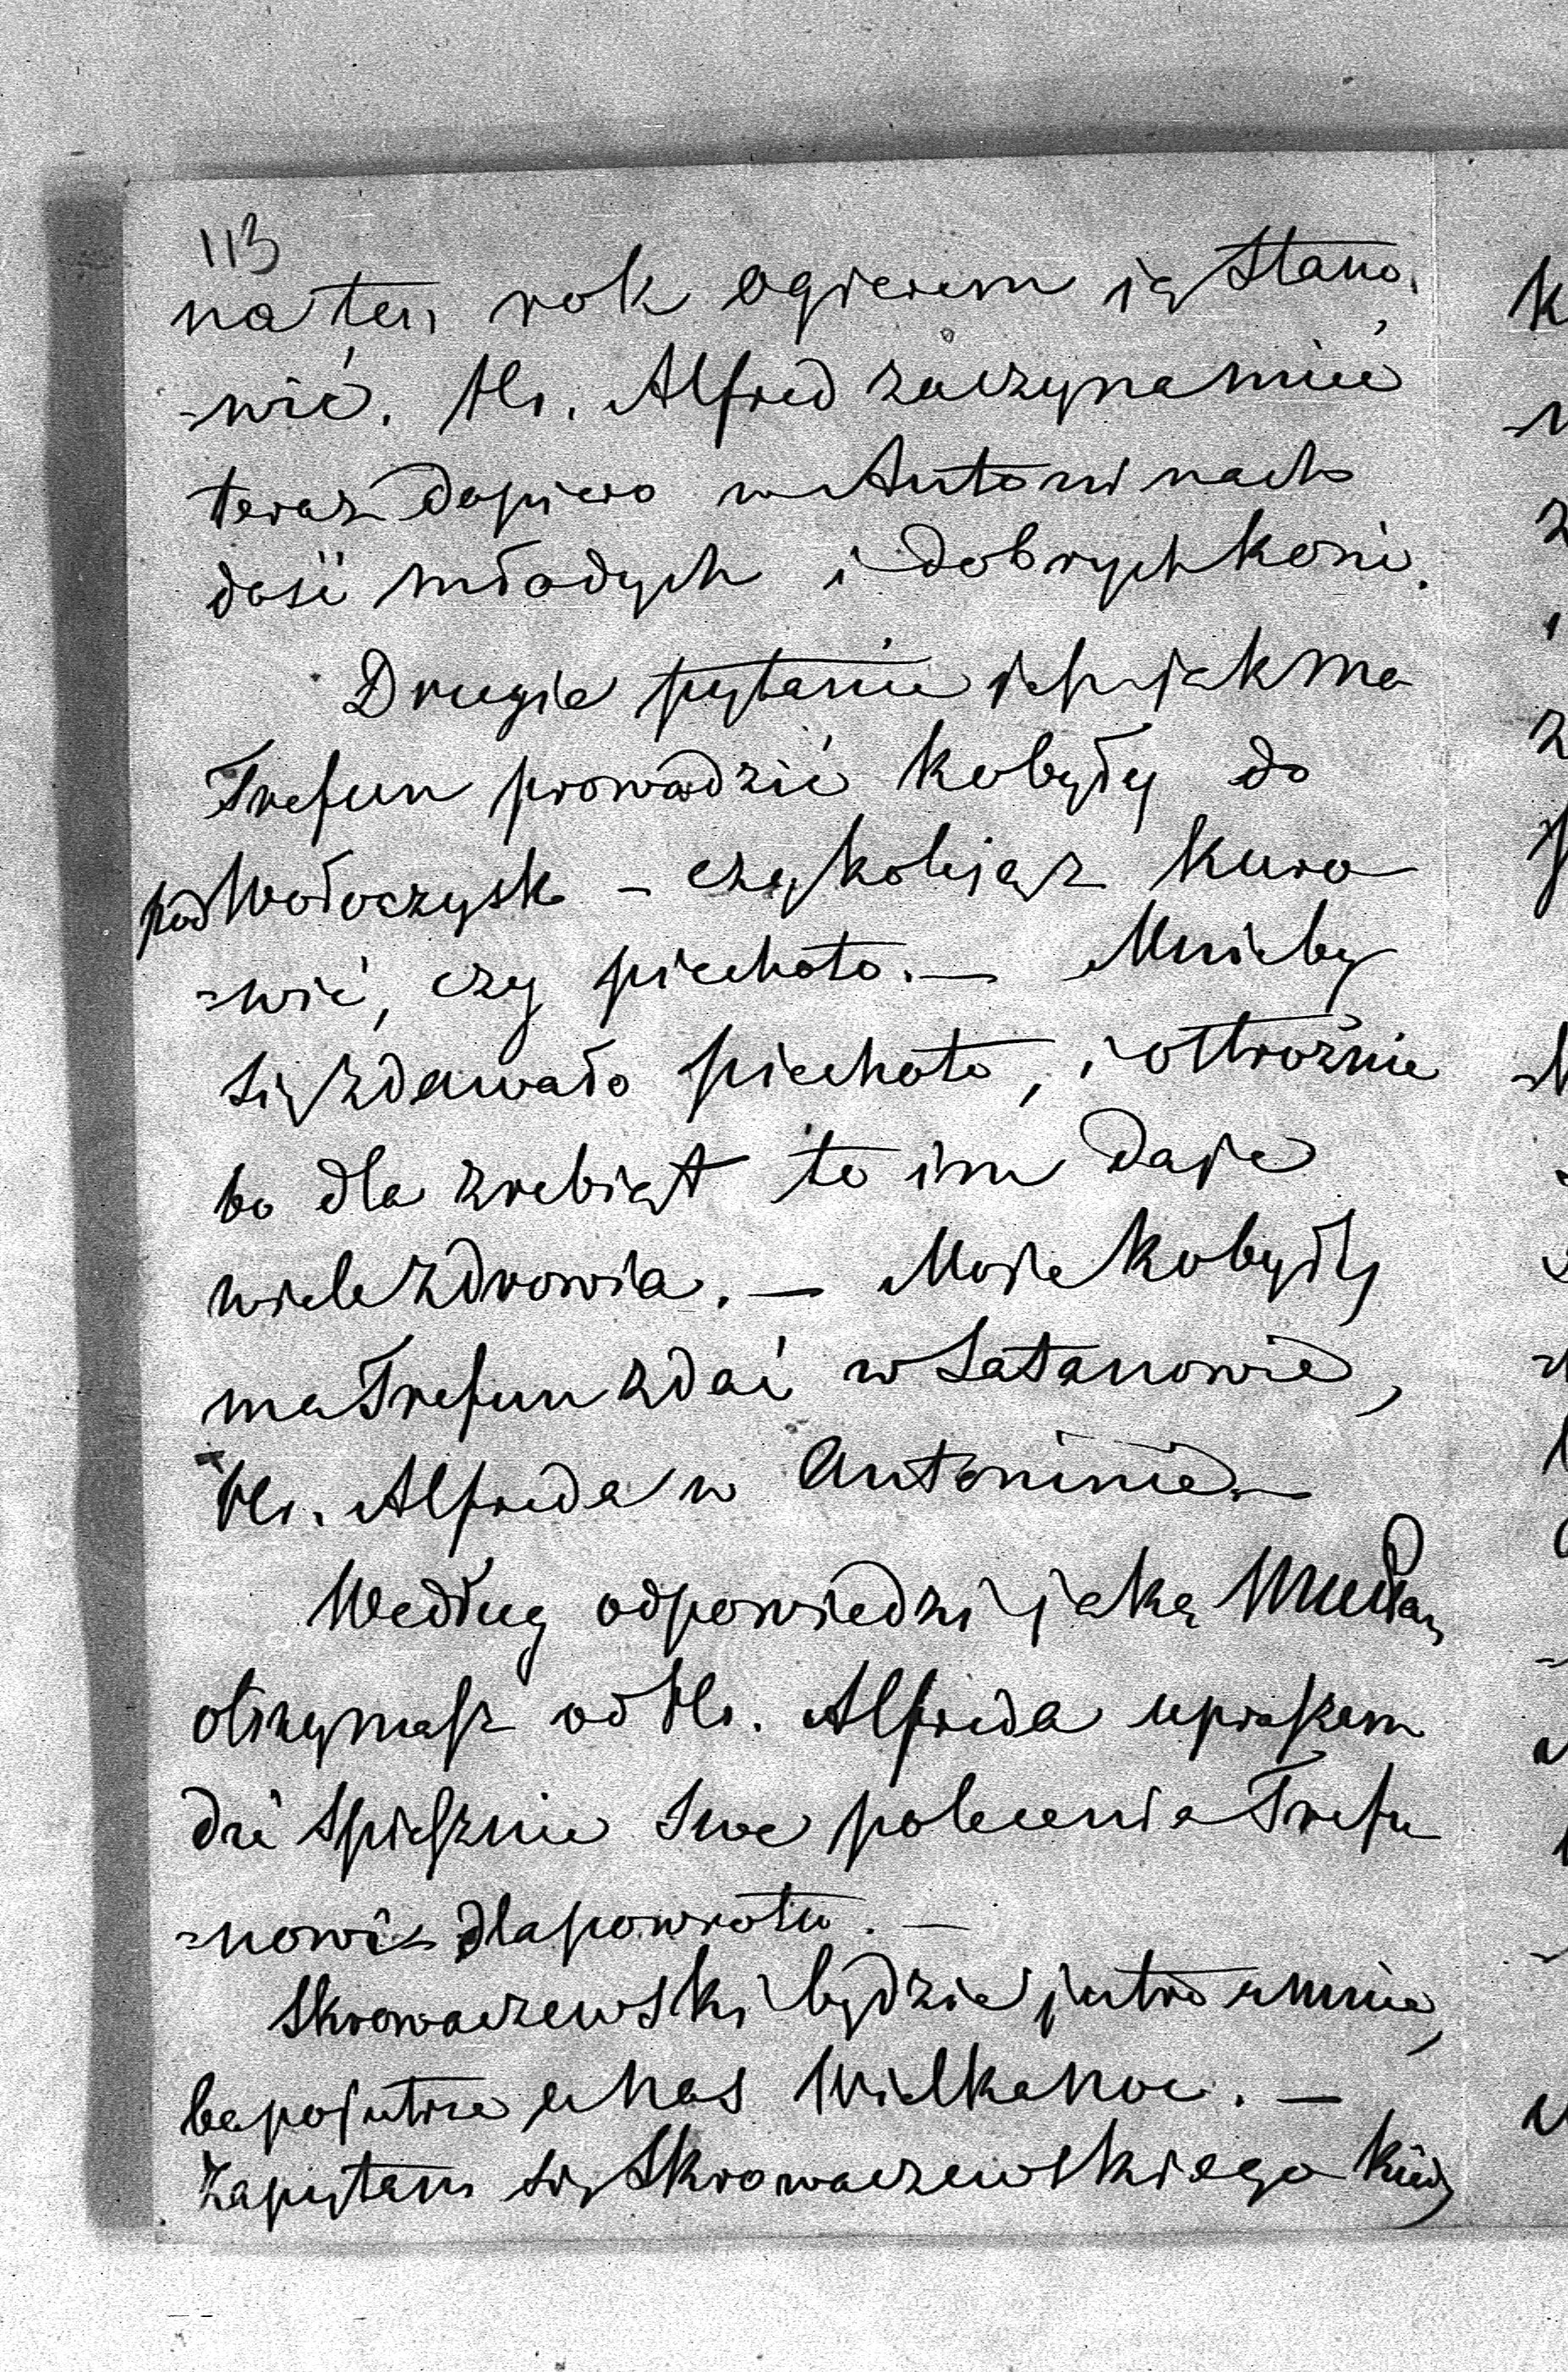 113
na ten rok ogierem ją stano
-wić. Hr. Alfred zaczyna mieć
teraz dopiero w Antoninach
dość młodych i dobrych koni.
Drugie pytanie jest jak ma
Trefun prowadzić kobyły do
pod Wołoczysk – czy koleją z Kuro
=wić, czy piechoto. — Mnieby
się zdawało piechoto, i ostrożnie
bo dla zrebiąt to im daje
wiele zdrowia. — Moje kobyły
ma Trefun zdać w Satanowie,
Hr. Alfreda w Antoninie. —
Według odpowiedzi jaką
otrzymasz od Hr. Alfreda upraszam
dać spiesznie swe polecenia Trefu
=nowi dla powrotu. —
Skrowaczewski będzie jutro u mnie,
bo pojutrze u nas Wielkanoc. —
Zapytam się Skrowaczewskiego kiedy